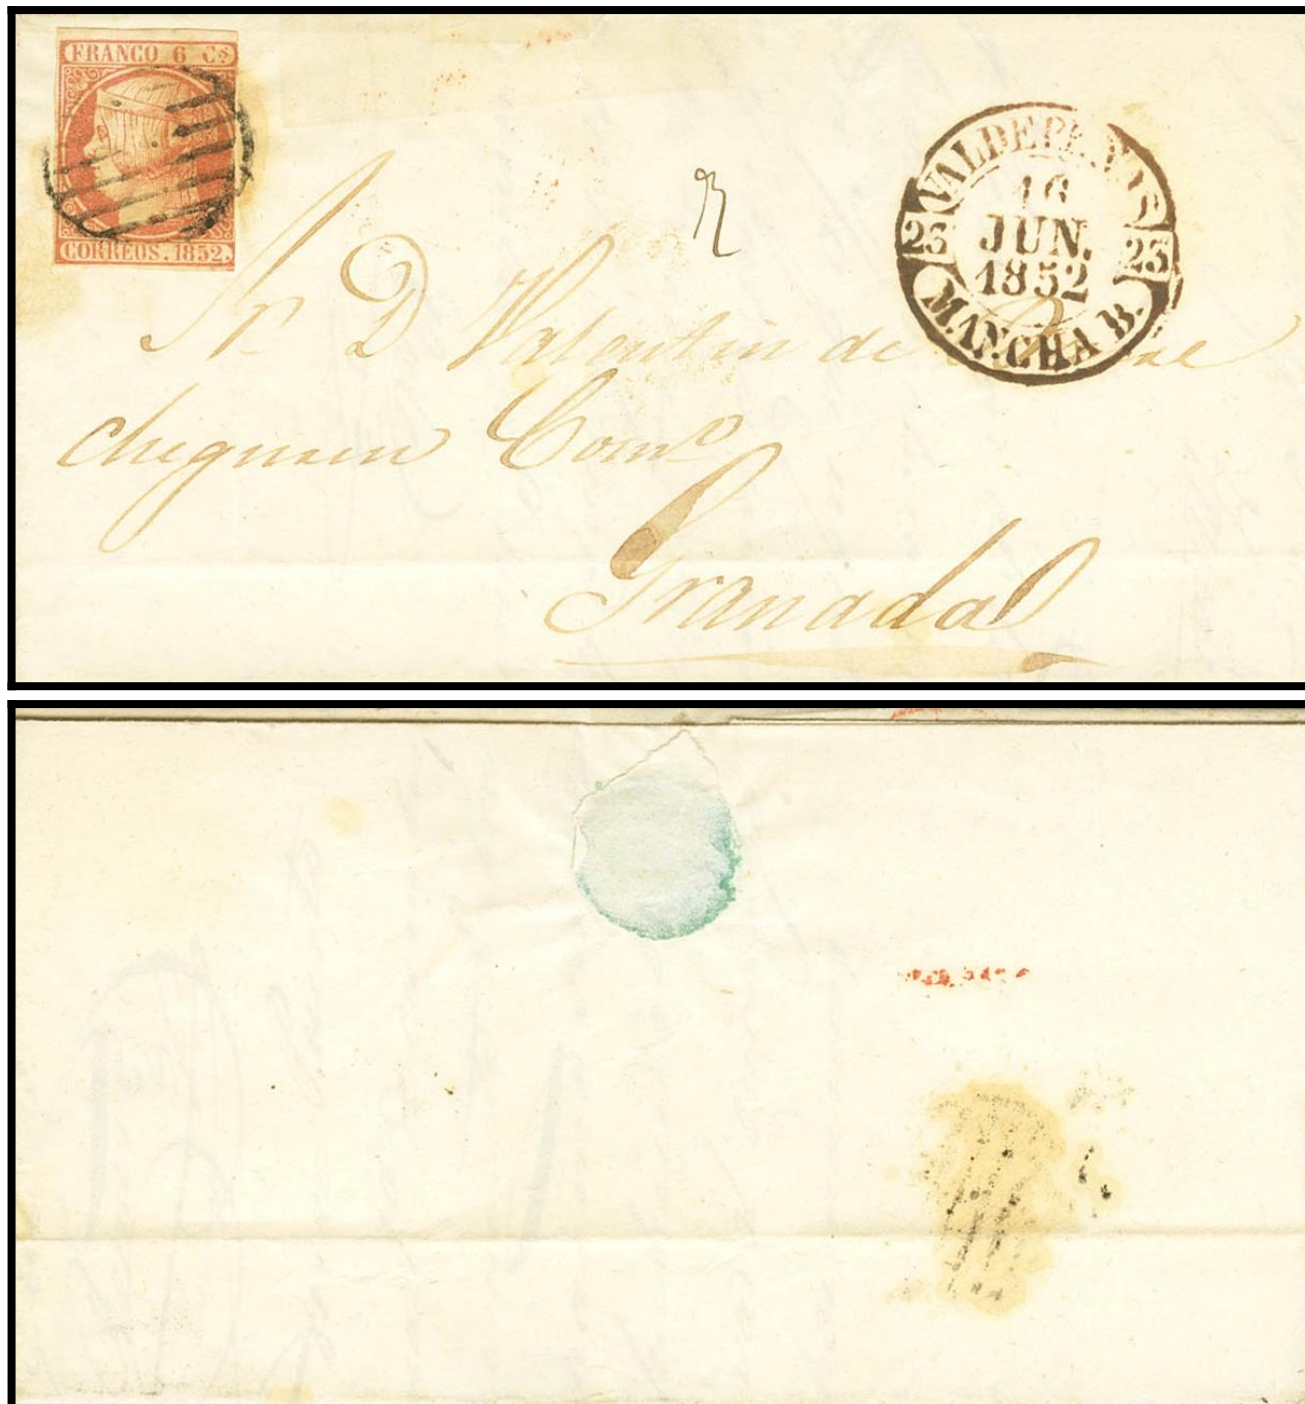 FRANCO 6 Cs
CORREOS. 1852.
VALDEPEÑAS
16
JUN.
1852
23 23
MANCHA B.
Sr D Valentin de
Com.o
Granada